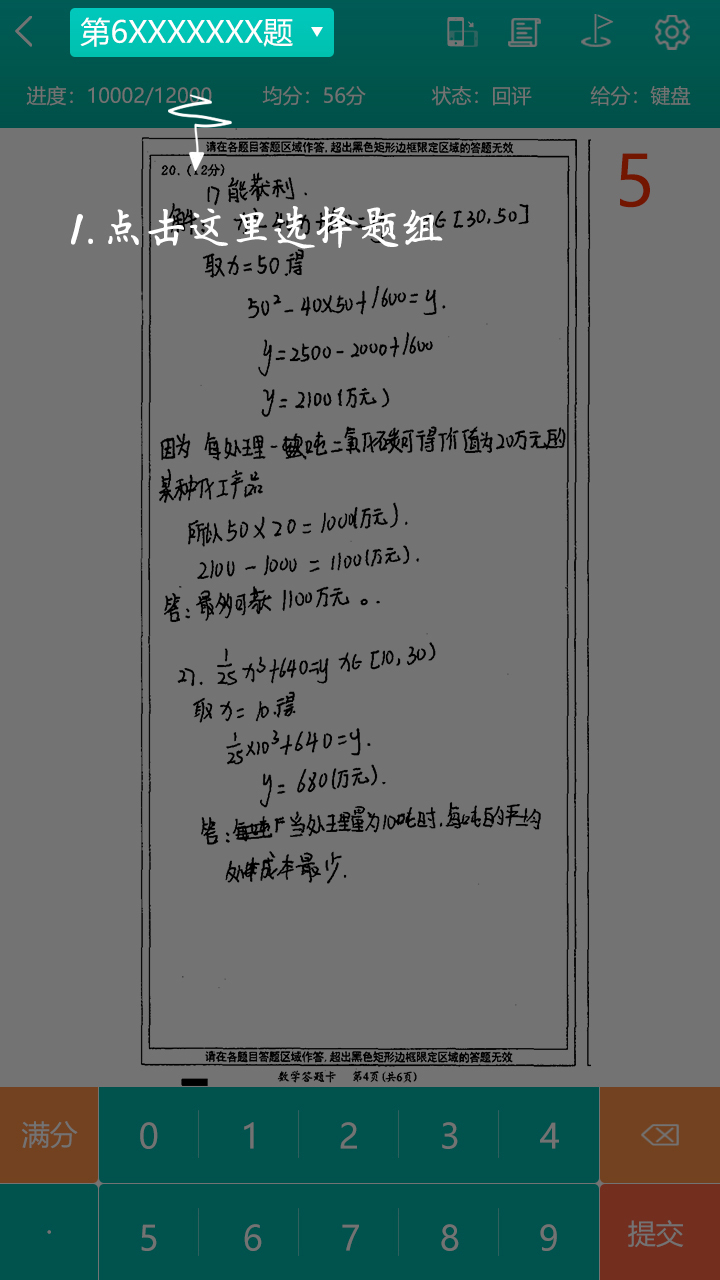 第6XXXXXXX题
进度：10002/12000 均分：56分 状态：回评 给分：键盘
请在各题目答题区域作答, 超出黑色矩形边框限定区域的答题无效
5
20. (12分)
1) 能获利.
1. 点击这里选择题组
∈[30,50]
取x=50得
50²-40×50+1600=y.
y=2500-2000+1600
y=2100(万元)
因为 每处理一吨二氧化碳可得价值为20万元的
某种化工产品
所以50×20=1000(万元).
2100-1000=1100(万元).
答: 最多可获1100万元。.
2). 1/25 x³+640=y x∈[10,30)
取x=10得
1/25×10³+640=y.
y=680(万元).
答: 当处理量为10吨时, 每吨的平均
成本最少.
请在各题目答题区域作答, 超出黑色矩形边框限定区域的答题无效
数学答题卡 第4页(共6页)
满分 0 1 2 3 4
. 5 6 7 8 9 提交